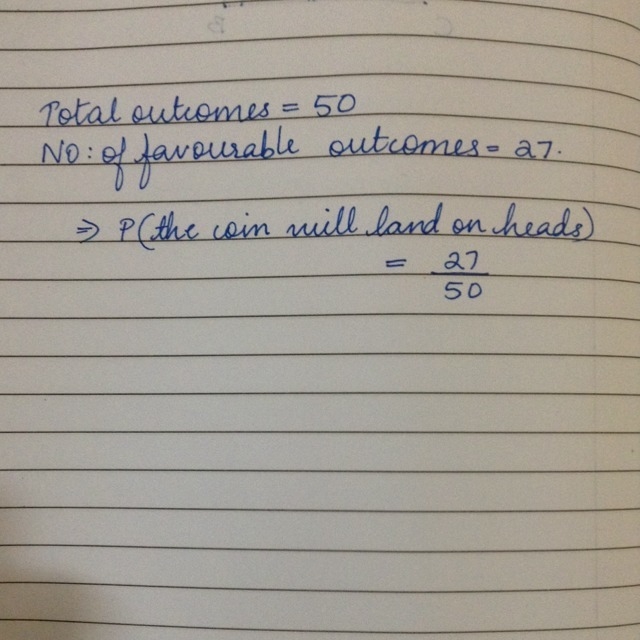 Total outcomes = 50
NO: of favourable outcomes = 27.
⇒ P(the coin will land on heads)
= 27
50